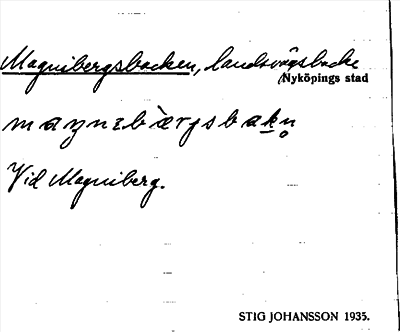 Magnibergsbacken, landsvägsbacke
Nyköpings stad
Vid Magniberg.
STIG JOHANSSON 1935.